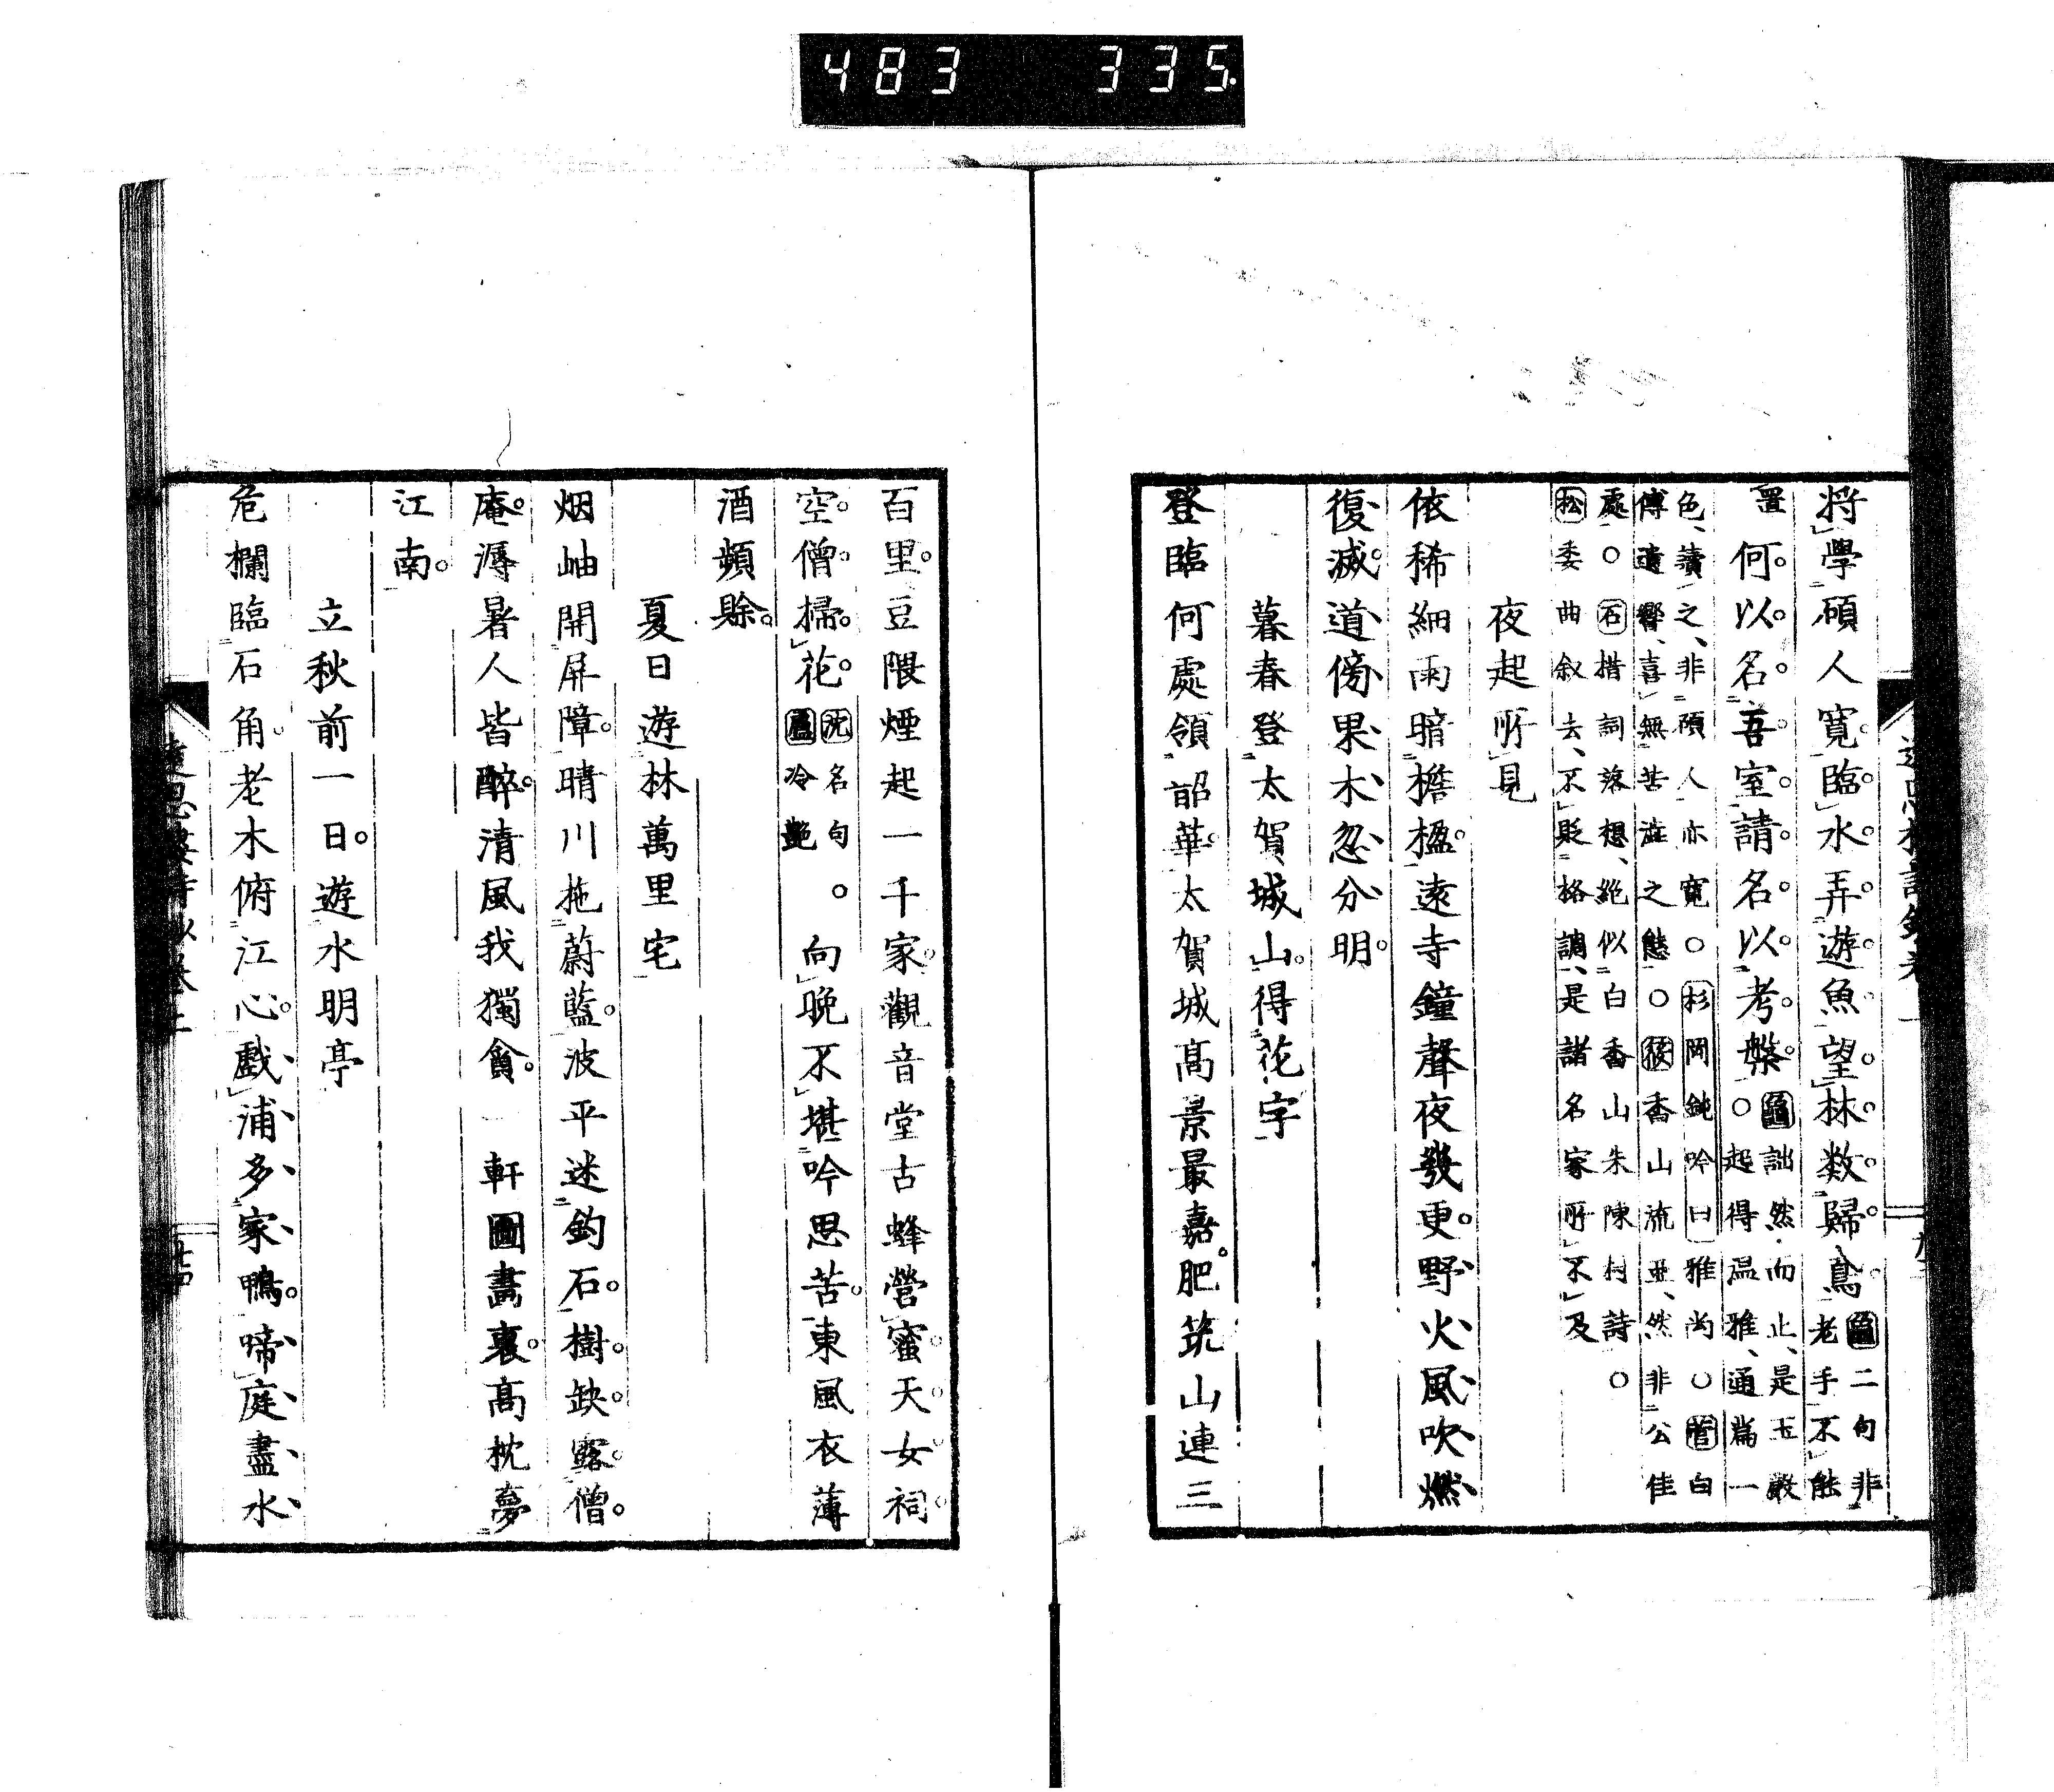 483 335
将學碩人寛臨水弄遊魚望林数歸鳥
二句非
老手不能
置何以名吾室請名以考槃
詘然而止是玉巖
○起得温雅通篇一
色讀之非碩人亦寛○杉岡鈍吟曰雅尚○菅白
傅遺響喜無苦澁之態○後香山流亜然非公佳
處○石措詞落想絶似白香山朱陳村詩○
松委曲叙去不貶格調是諸名家所不及
夜起所見
依稀細雨暗檐楹遠寺鐘聲夜發更野火風吹燃
復滅道傍果木忽分明
暮春登太賀城山得花字
登臨何處領韶華太賀城高景最嘉肥筑山連三
百里豆隈煙起一千家觀音堂古蜂營蜜天女祠
空僧掃花
沈名句○
冷艶
向晩不堪吟思苦東風衣薄
酒頻賖
夏日遊林萬里宅
烟岫開屏障晴川拖蔚藍波平迷釣石樹缺露僧
庵溽暑人皆醉清風我獨貪一軒圖畵裏高枕夢
江南
立秋前一日遊水明亭
危欄臨石角老木俯江心戲浦多家鴨啼庭盡水